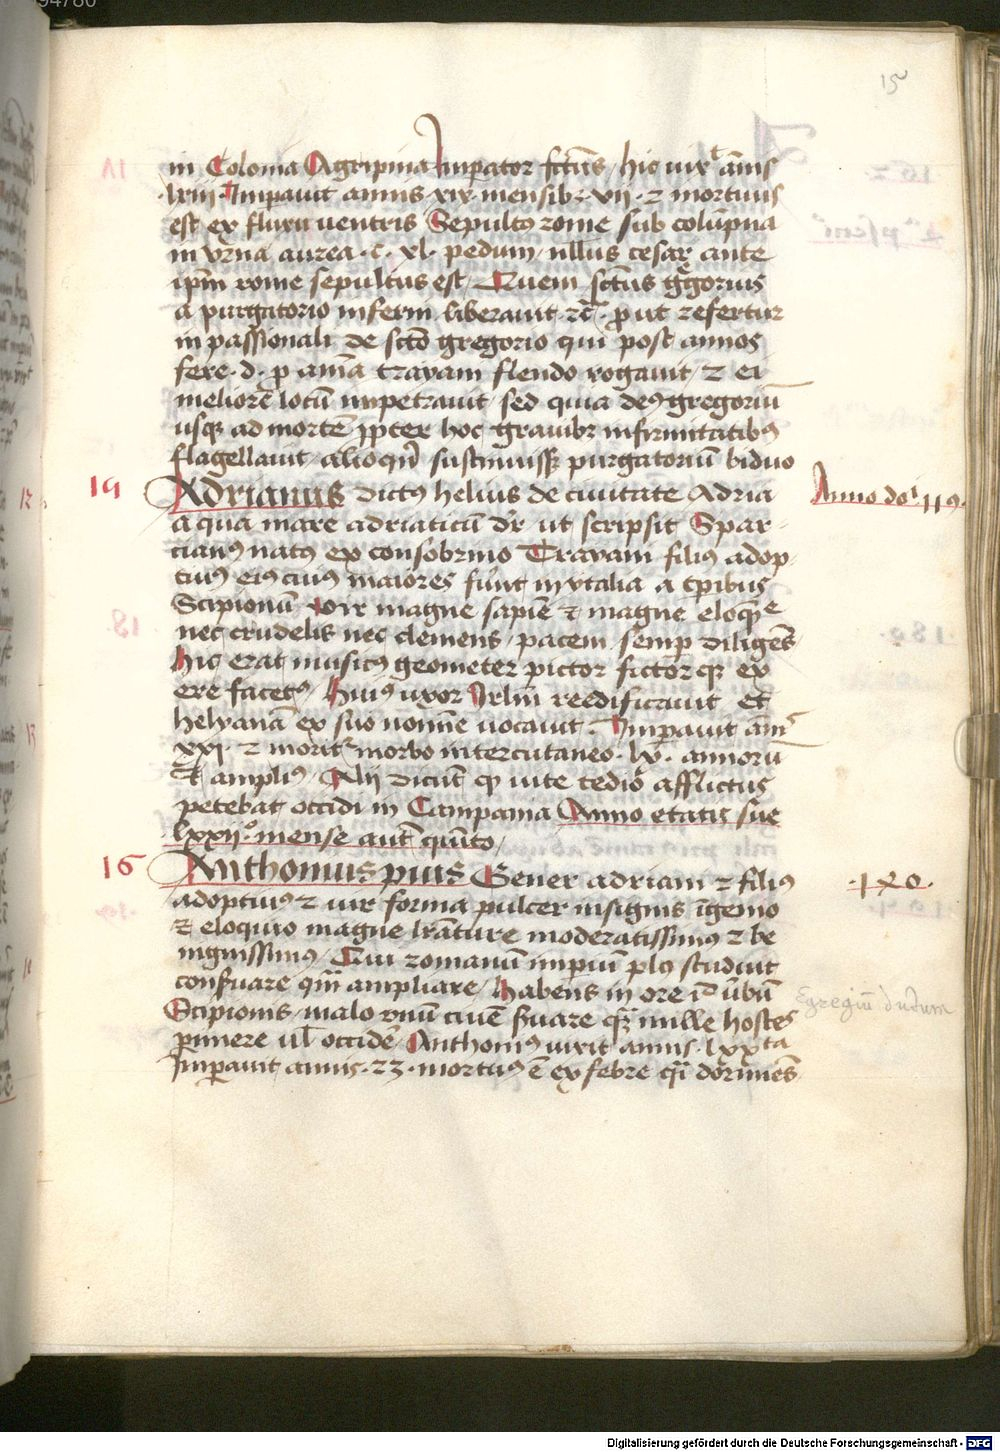 15
in Colonia Agripina Imperator fcts hic vixt annis
lxiii Imperavit annis xix mensib9 vii 2 mortuus
est ex fluxu ventris Sepultus rome sub columpna
in vrna aurea c xl pedum nullus cesar ante
ipm rome sepultus est Quem sctus ggorius
a purgatorio inferni liberavit 2c prout refertur
in passionali de scto gregorio qui post annos
fere d p aima trayani flendo rogavit 2 ei
meliore locu impetravit sed quia deus gregoriu
usq ad morte ppter hoc gravibz infirmitatibus
flagellavit alioqn sustinuisset purgatoriu biduo
Adrianus dictus helius de civitate Adria
Anno doi 119
a qua mare adriaticu dr ut scripsit Spar
cianus natus ex consobrino Trayani filius adop
tivus eius cuius maiores funt in ytalia a tpibus
Scipionu vir magne sapie et magne eloque
nec crudelis nec clemens pacem semp diligens
hic erat musicus geometer pictor fictor q ex
ere facetus huius uxor Irlm reedificavit et
helyana ex suo nomine vocavit Imperavit anis
xxi 2 moritr morbo intercutaneo lx annoru
Et amplius Alii dicut q vite tedio afflictus
petebat occidi in Campania Anno etatis sue
lxxiio mense aut quinto
16
Anthonius pius Gener adriani 2 filius
120
adoptivus 2 vir forma pulcer insignis igenio
et eloquio magne lrature moderatissimus 2 be
nignissimus Qui romanu imperiu plus studuit
conservare qm ampliare habens in ore id verbu
Egregiu dictum
Scipionis malo vnu cive servare qm mille hostes
perimere vl occidere Anthonius vixit annis lxxta
Imperavit annis 23 mortuus e ex febre
Digitalisierung gefördert durch die Deutsche Forschungsgemeinschaft - DFG